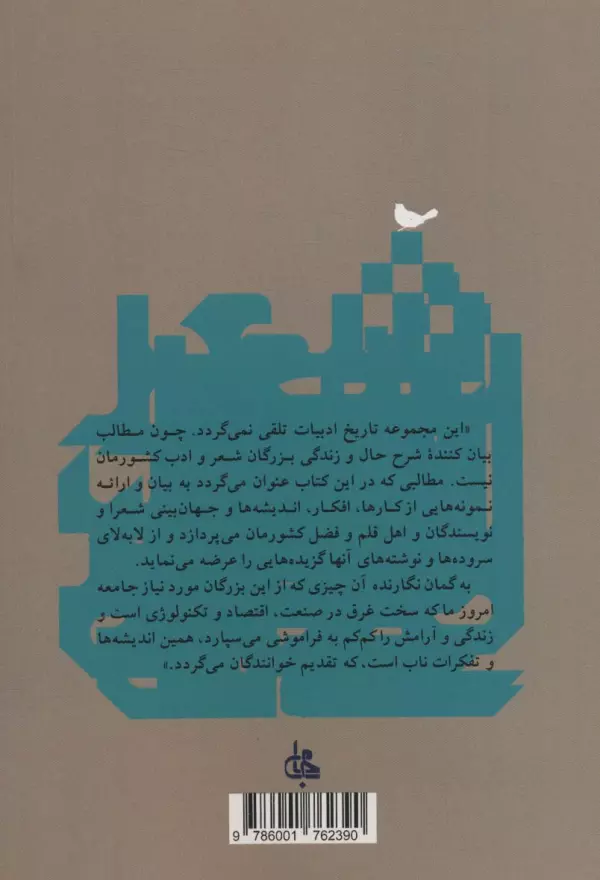 «این مجموعه تاریخ ادبیات تلقی نمی‌گردد. چون مطالب
بیان کنندهٔ شرح حال و زندگی بزرگان شعر و ادب کشورمان
نیست. مطالبی که در این کتاب عنوان می‌گردد به بیان و ارائه
نمونه‌هایی از کارها، افکار، اندیشه‌ها و جهان‌بینی شعرا و
نویسندگان و اهل قلم و فضل کشورمان می‌پردازد و از لابه‌لای
سروده‌ها و نوشته‌های آنها گزیده‌هایی را عرضه می‌نماید.
به گمان نگارنده آن چیزی که از این بزرگان مورد نیاز جامعه
امروز ما که سخت غرق در صنعت، اقتصاد و تکنولوژی است و
زندگی و آرامش را کم‌کم به فراموشی می‌سپارد، همین اندیشه‌ها
و تفکرات ناب است، که تقدیم خوانندگان می‌گردد.»
جامی
9 786001 762390